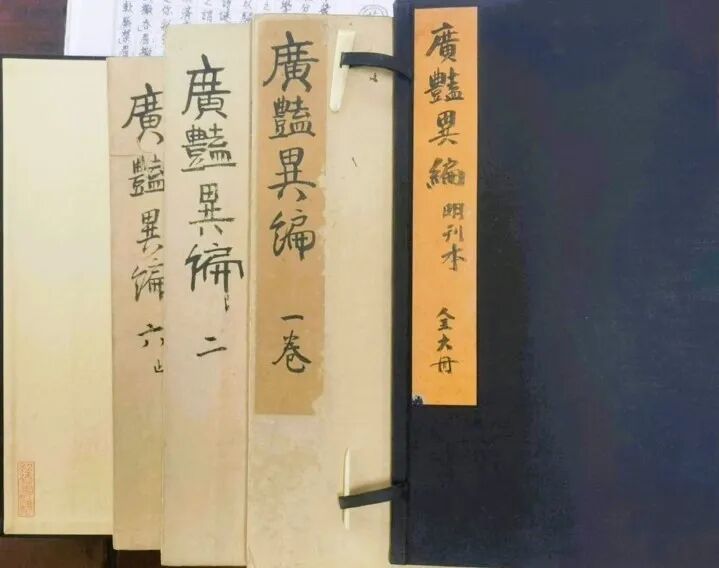 廣豔異編 明刊本 全六冊
廣豔異編 一卷
廣豔異編 二
廣豔異編 六